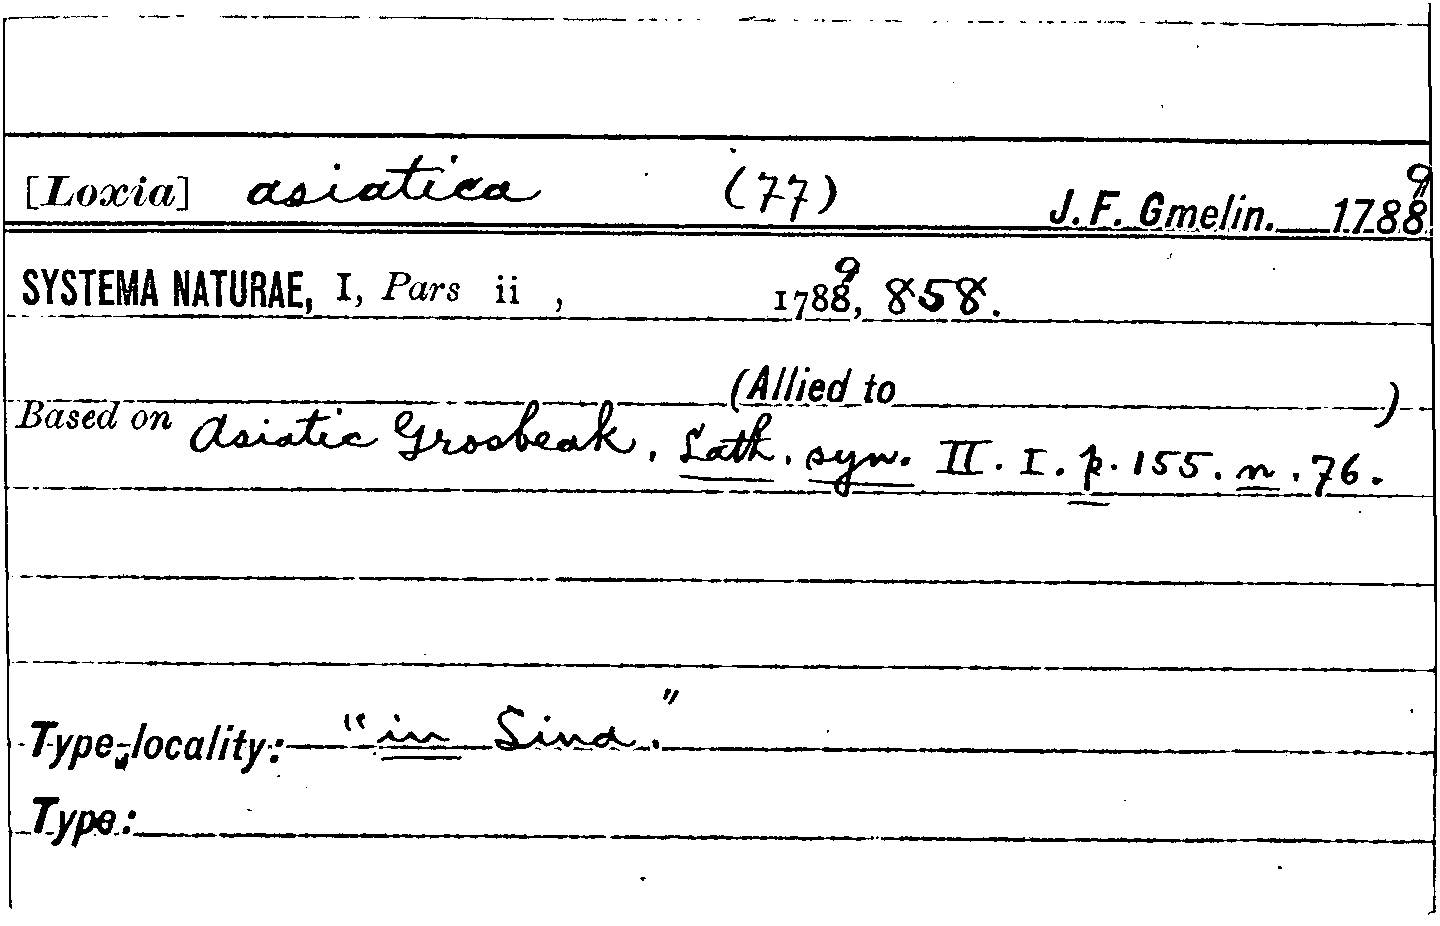 [Loxia] asiatica (77) J. F. Gmelin. 1788 9
SYSTEMA NATURAE, I, Pars ii , 1788 9, 858.
(Allied to )
Based on Asiatic Grosbeak. Lath. syn. II. I. p. 155. n. 76.
Type-locality: "in Sina."
Type: